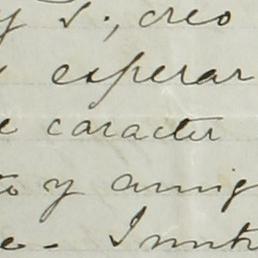 y S., creo
esperar
e caracter
to y amig
e. Inutr